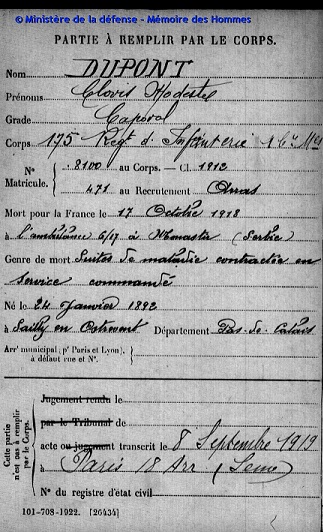 © Ministère de la défense - Mémoire des Hommes
PARTIE À REMPLIR PAR LE CORPS.
Nom DUPONT
Prénoms Clovis Modeste
Grade Caporal
Corps 175 Regt d'Infanterie 1 Cie
N° Matricule. 8100 au Corps. — Cl. 1912
471 au Recrutement Arras
Mort pour la France le 17 Octobre 1918
à l'ambulance 6/17 à Monastir (Serbie)
Genre de mort Suites de maladie contractée en
service commandé
Né le 24 Janvier 1892
à Sailly en Ostrevent Département Pas-de-Calais
Arrt municipal (pr Paris et Lyon), à défaut rue et N°.
Cette partie n'est pas à remplir par le Corps.
Jugement rendu le
par le Tribunal de
acte ou jugement transcrit le 8 Septembre 1919
à Paris 18 Arr (Seine)
N° du registre d'état civil
101-708-1922. [26434]